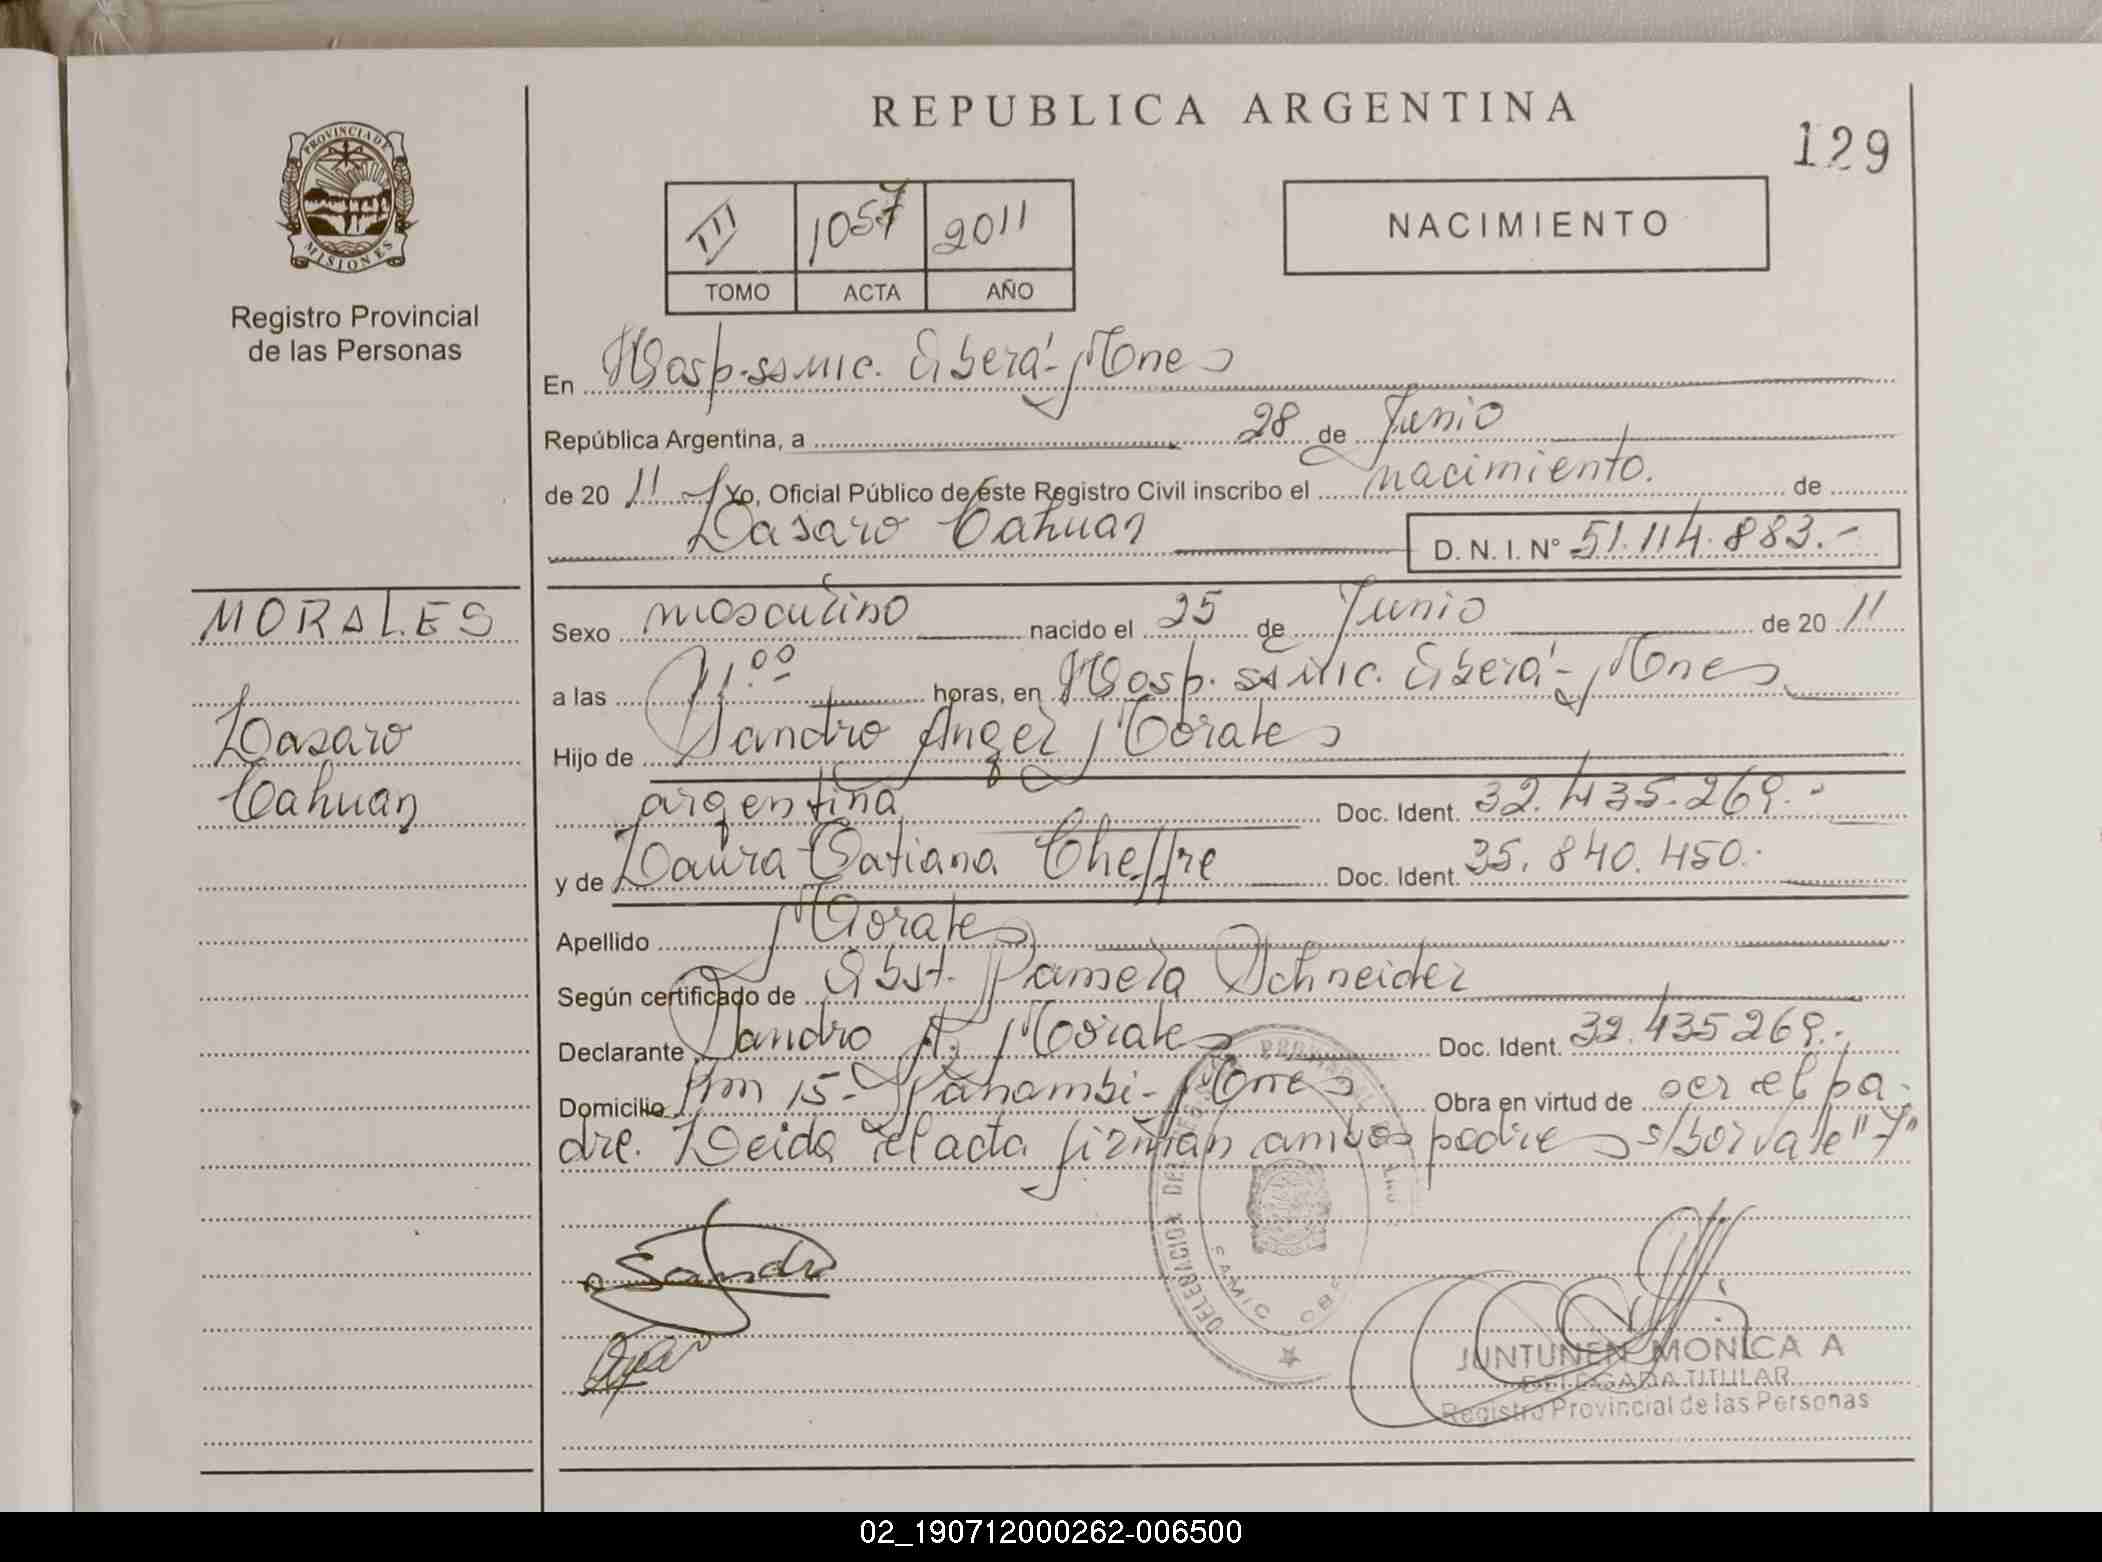 REPUBLICA ARGENTINA
129
PROVINCIA DE
MISIONES
Registro Provincial
de las Personas
III 1057 2011
TOMO ACTA AÑO
NACIMIENTO
En Hosp. SAMIC. Oberá - Mnes
República Argentina, a 28 de Junio
de 2011 Yo, Oficial Público de este Registro Civil inscribo el nacimiento. de
Lasaro Cahuan
D. N. I. N° 51.114.883.-
MORALES
Lasaro
Cahuan
Sexo masculino nacido el 25 de Junio de 2011
a las horas, en Hosp. SAMIC. Oberá - Mnes
Hijo de Sandro Angel Morales
argentina Doc. Ident. 32.435.269.-
y de Laura Tatiana Cheffre Doc. Ident. 35.840.450.-
Apellido Morales
Según certificado de Obst. Pamela Schneider
Declarante Sandro A. Morales Doc. Ident. 32.435269.-
Domicilio Km 15 - Panambi - Mnes Obra en virtud de ser el pa-
dre. Leida el acta firman ambos padres s/bor vale "7"
Sandro
DELEGACION
SAMIC
JUNTUNEN MONICA A
DELEGADA TITULAR
Registro Provincial de las Personas
02_190712000262-006500